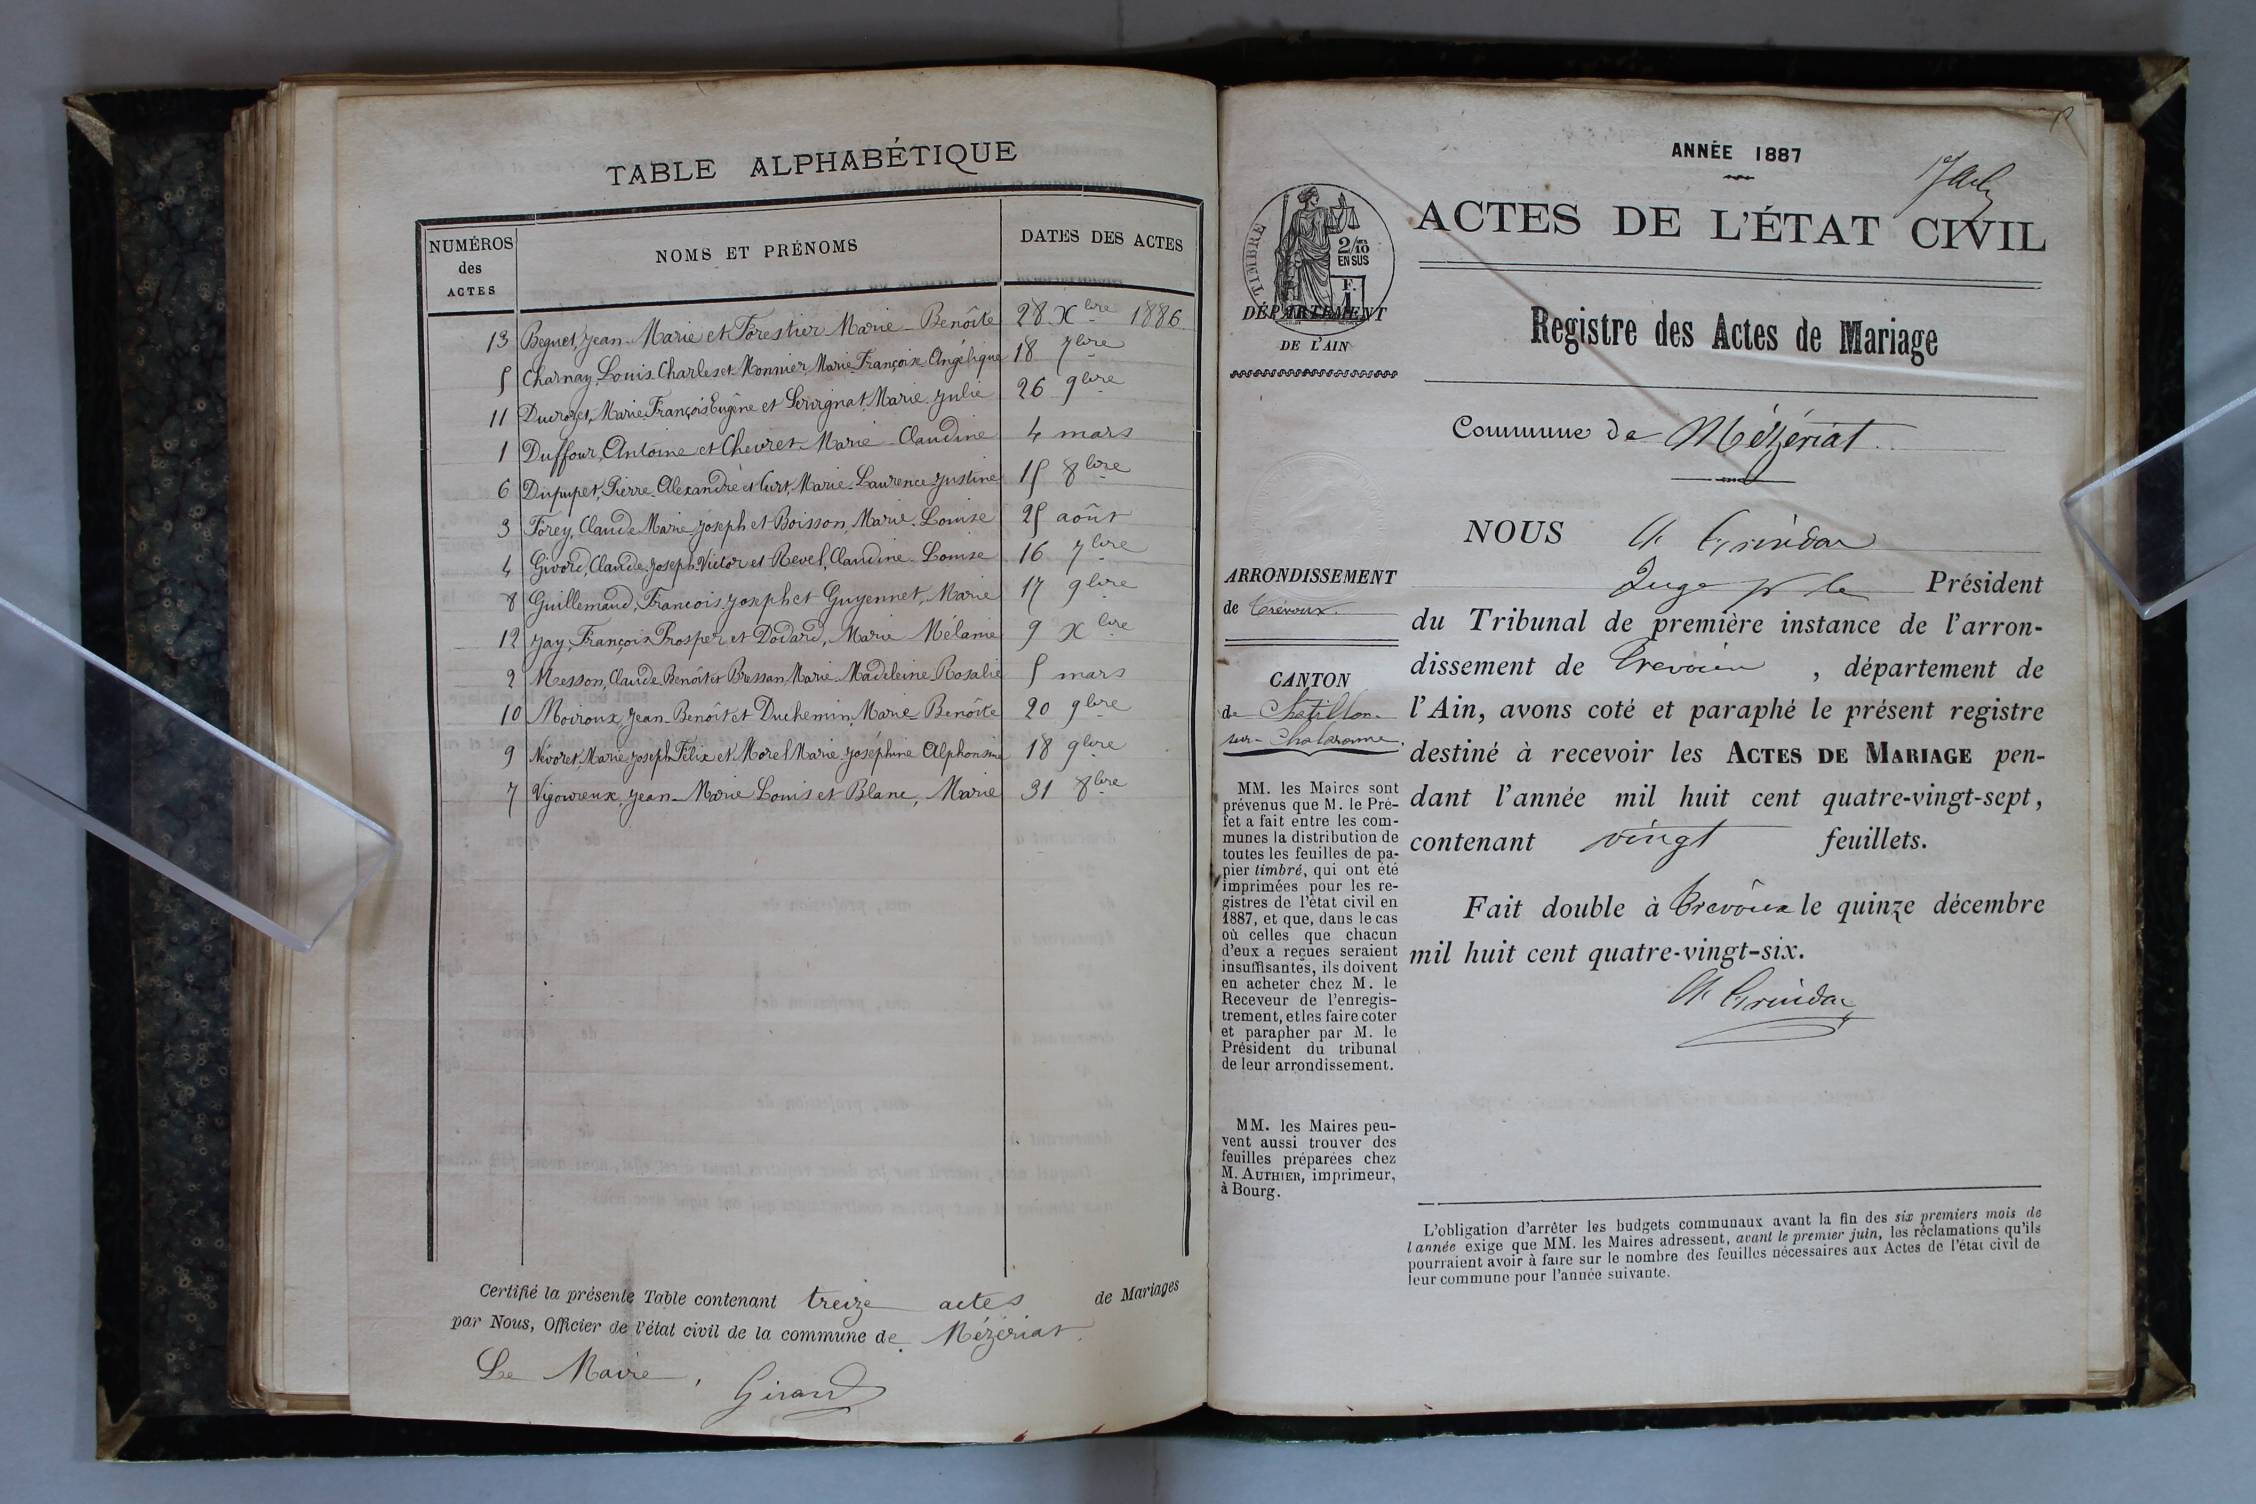 TABLE ALPHABÉTIQUE
NUMÉROS des ACTES NOMS ET PRÉNOMS DATES DES ACTES
13 Beguet, Jean-Marie et Forestier Marie-Benôite 28 Xbre 1886
5 Charnay, Louis Charles et Monnier Marie Françoise Angélique 18 7bre
11 Ducrozet, Marie François Eugène et Servignat Marie Julie 26 9bre
1 Duffour, Antoine et Chevret Marie Claudine 4 mars
6 Dupupet, Pierre Alexandre et Curt, Marie-Laurence Justine 15 8bre
3 Forey, Claude Marie Joseph et Boisson, Marie-Louise 25 août
4 Givord, Claude Joseph Victor et Revel, Claudine-Louise 16 7bre
8 Guillemaud, François Joseph et Guyennet, Marie 17 9bre
12 Jay, François Prosper et Dodard, Marie Mélanie 9 Xbre
2 Messon, Claude Benôit et Bressan Marie Madeleine Rosalie 5 mars
10 Moiroux, Jean-Benôit et Duchemin, Marie-Benôite 20 9bre
9 Névoret, Marie Joseph Félix et Morel Marie Joséphine Alphonsine 18 9bre
7 Vigoureux, Jean-Marie Louis et Blanc, Marie 31 8bre
Certifié la présente Table contenant treize actes de Mariages
par Nous, Officier de l'état civil de la commune de Mézériat.
Le Maire,
Girard
ANNÉE 1887
ACTES DE L'ÉTAT CIVIL
TIMBRE
2/10 EN SUS
F. 1
DÉPARTEMENT
DE L'AIN
Registre des Actes de Mariage
Commune de Mézériat
ARRONDISSEMENT
de Trévoux.
CANTON
de Chatillon-
sur-Chalaronne.
MM. les Maires sont
prévenus que M. le Pré-
fet a fait entre les com-
munes la distribution de
toutes les feuilles de pa-
pier timbré, qui ont été
imprimées pour les re-
gistres de l'état civil en
1887, et que, dans le cas
où celles que chacun
d'eux a reçues seraient
insuffisantes, ils doivent
en acheter chez M. le
Receveur de l'enregis-
trement, et les faire coter
et parapher par M. le
Président du tribunal
de leur arrondissement.
MM. les Maires peu-
vent aussi trouver des
feuilles préparées chez
M. AUTHIER, imprimeur,
à Bourg.
NOUS
Juge pr le Président
du Tribunal de première instance de l'arron-
dissement de Trevoux, département de
l'Ain, avons coté et paraphé le présent registre
destiné à recevoir les ACTES DE MARIAGE pen-
dant l'année mil huit cent quatre-vingt-sept,
contenant vingt feuillets.
Fait double à Trevoux le quinze décembre
mil huit cent quatre-vingt-six.
L'obligation d'arrêter les budgets communaux avant la fin des six premiers mois de
l'année exige que MM. les Maires adressent, avant le premier juin, les réclamations qu'ils
pourraient avoir à faire sur le nombre des feuilles nécessaires aux Actes de l'état civil de
leur commune pour l'année suivante.